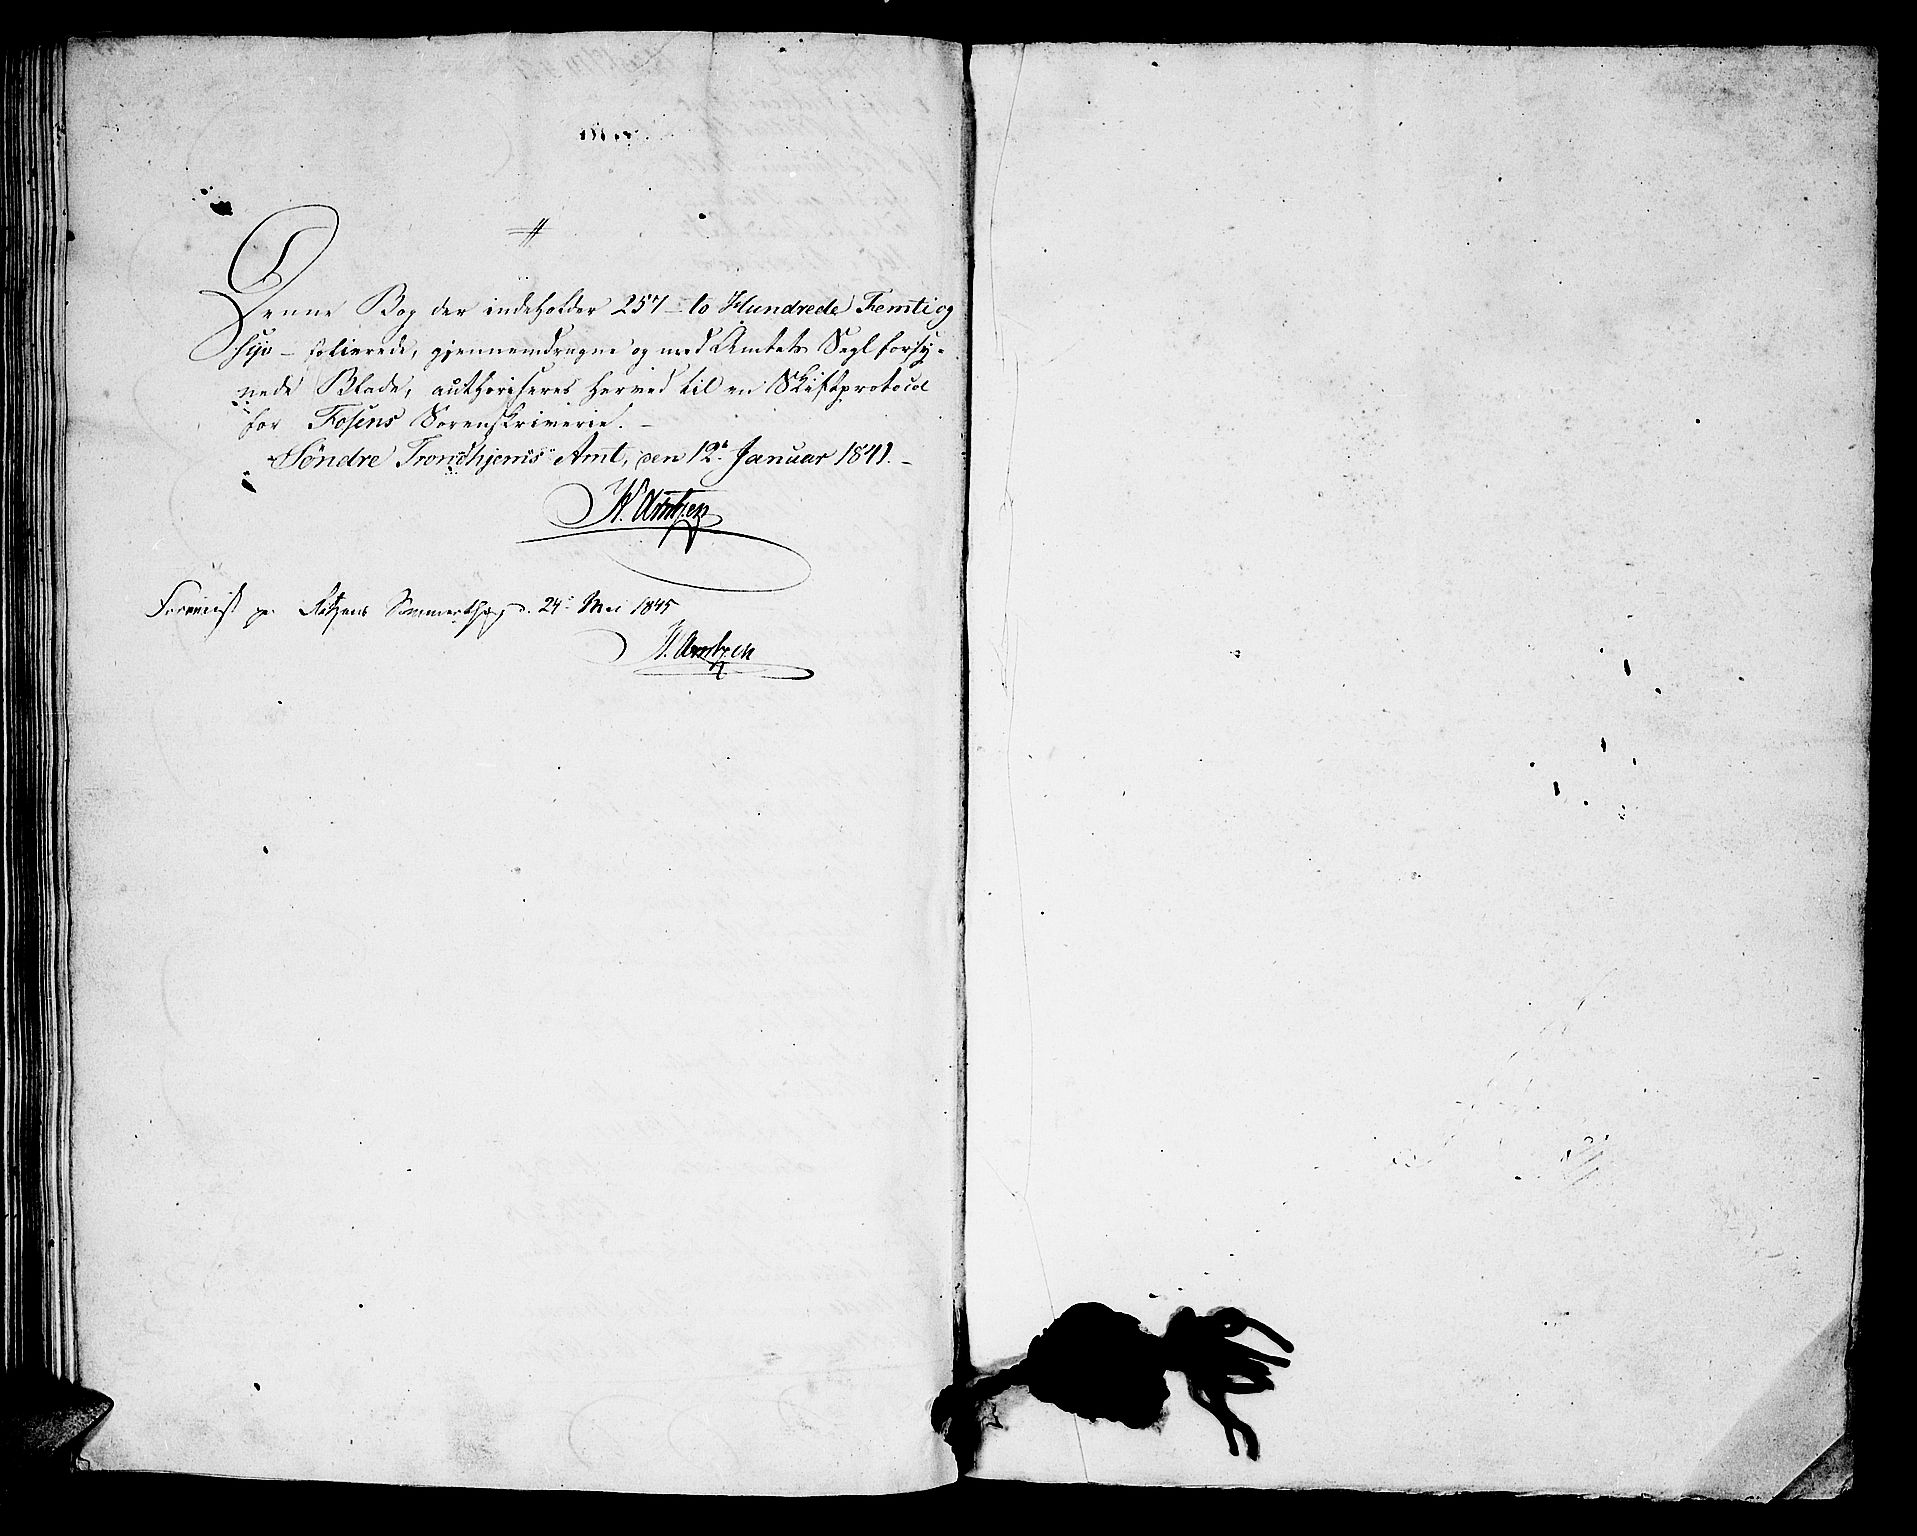 Denne Bog der indeholder 257 - to Hundrede Femti og
syv - folierede, gjennemdragne og med Amtets Segl forsy-
nede Blade, authoriseres herved til en Skifteprotocol
for Fosens Sorenskriverie. -
Søndre Trondhjems Amt, den 12t Januar 1841. -
Arntzen
Foreviist paa Sommerthing d. 24de Mai 1845
Arntzen